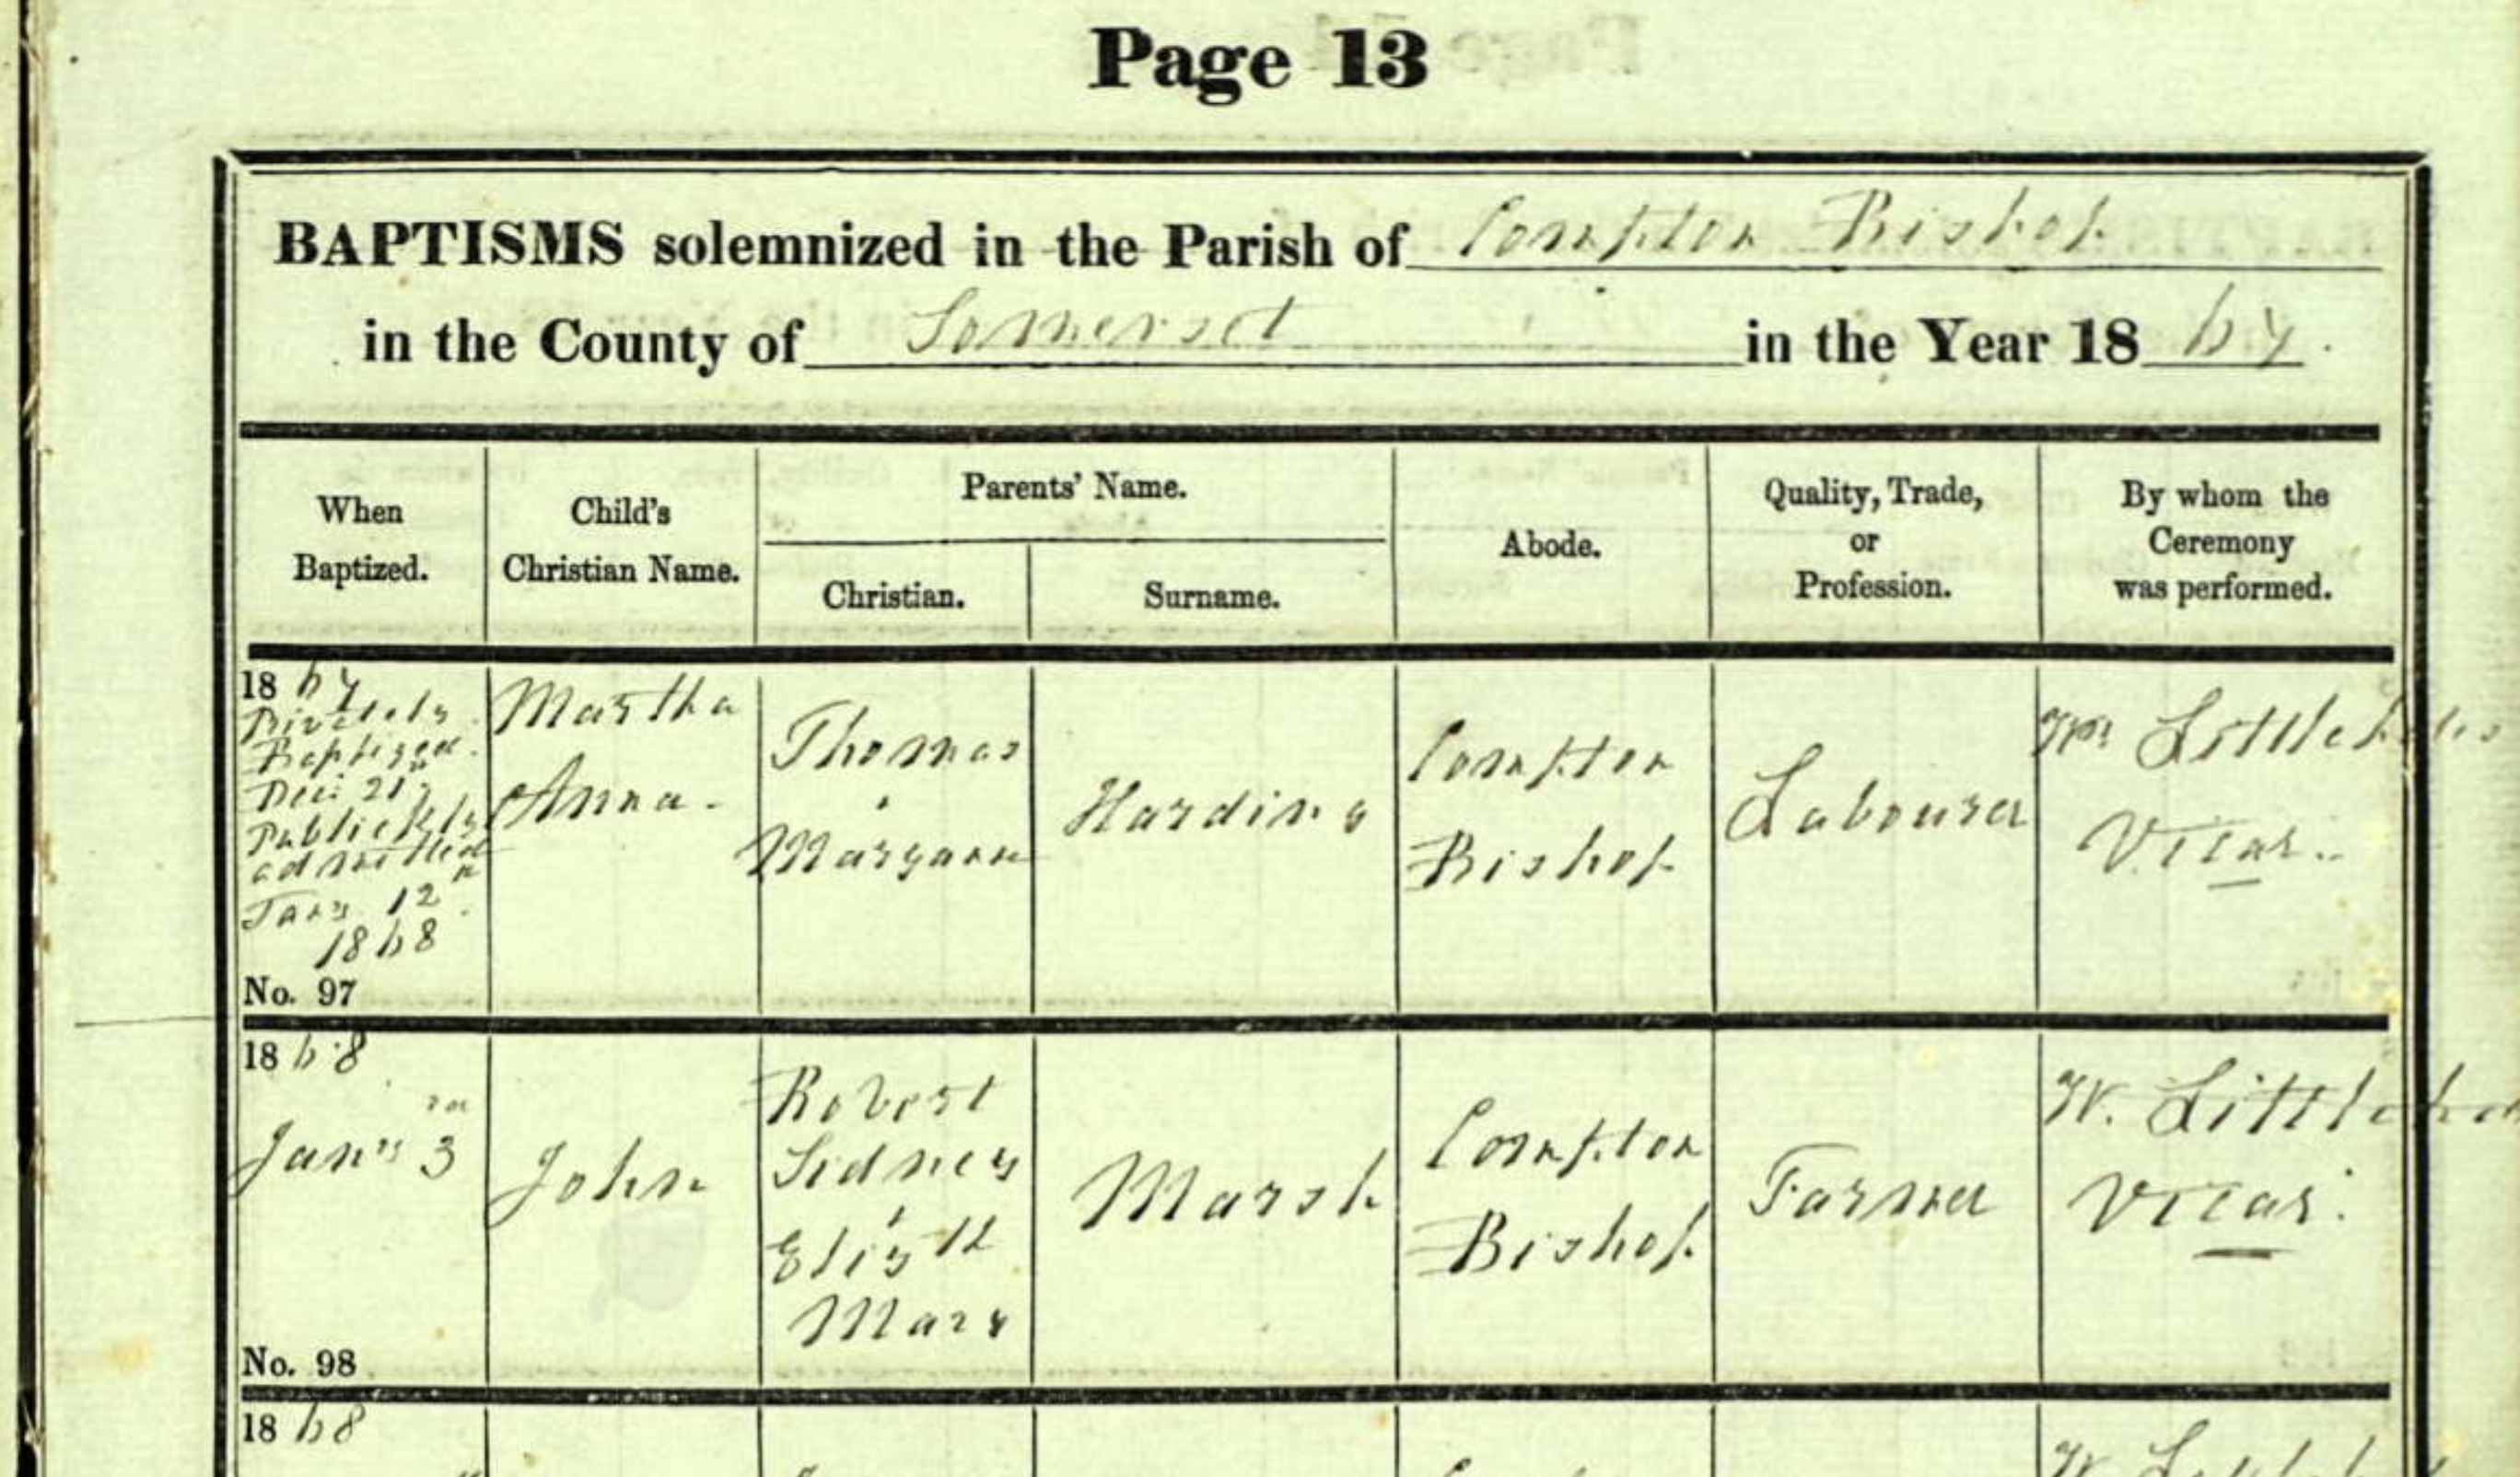 Page 13
BAPTISMS solemnized in the Parish of Compton Bishop
in the County of Somerset in the Year 18 67.
When
Baptized.
Child's
Christian Name.
Parents' Name.
Christian.
Surname.
Abode.
Quality, Trade,
or
Profession.
By whom the
Ceremony
was performed.
18 67
Privately
Baptized
Dec: 21
Publickly
admitted
Jany 12th
1868
No. 97
Martha
Anna.
Thomas
&
Maryann
Harding
Compton
Bishop
Labourer
Wm Littlehales
Vicar.
18 68
Jany 3rd
No. 98
John
Robert
Sidney
&
Elizth
Mary
Marsh
Compton
Bishop
Farmer
W. Littleha
Vicar.
18 68